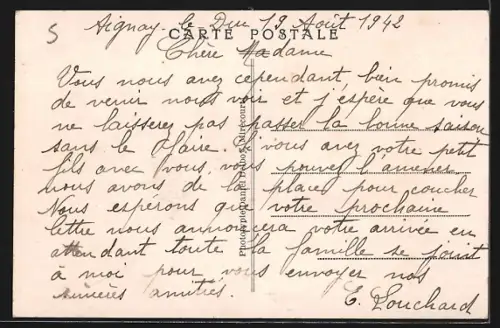 5
Aignay-le-Duc 19 Août 1942
CARTE POSTALE
Chère Madame
Vous nous avez cependant bien promis
de venir nous voir et j'espère que vous
ne laisserez pas passer la bonne saison
sans le faire. Si vous avez votre petit
fils avec vous, vous pouvez l'amener
nous avons de la place pour coucher
Nous espérons que votre prochaine
lettre nous annoncera votre arrivée en
attendant toute la famille se joint
à moi pour vous envoyer nos
sincères amitiés.
E. Louchard